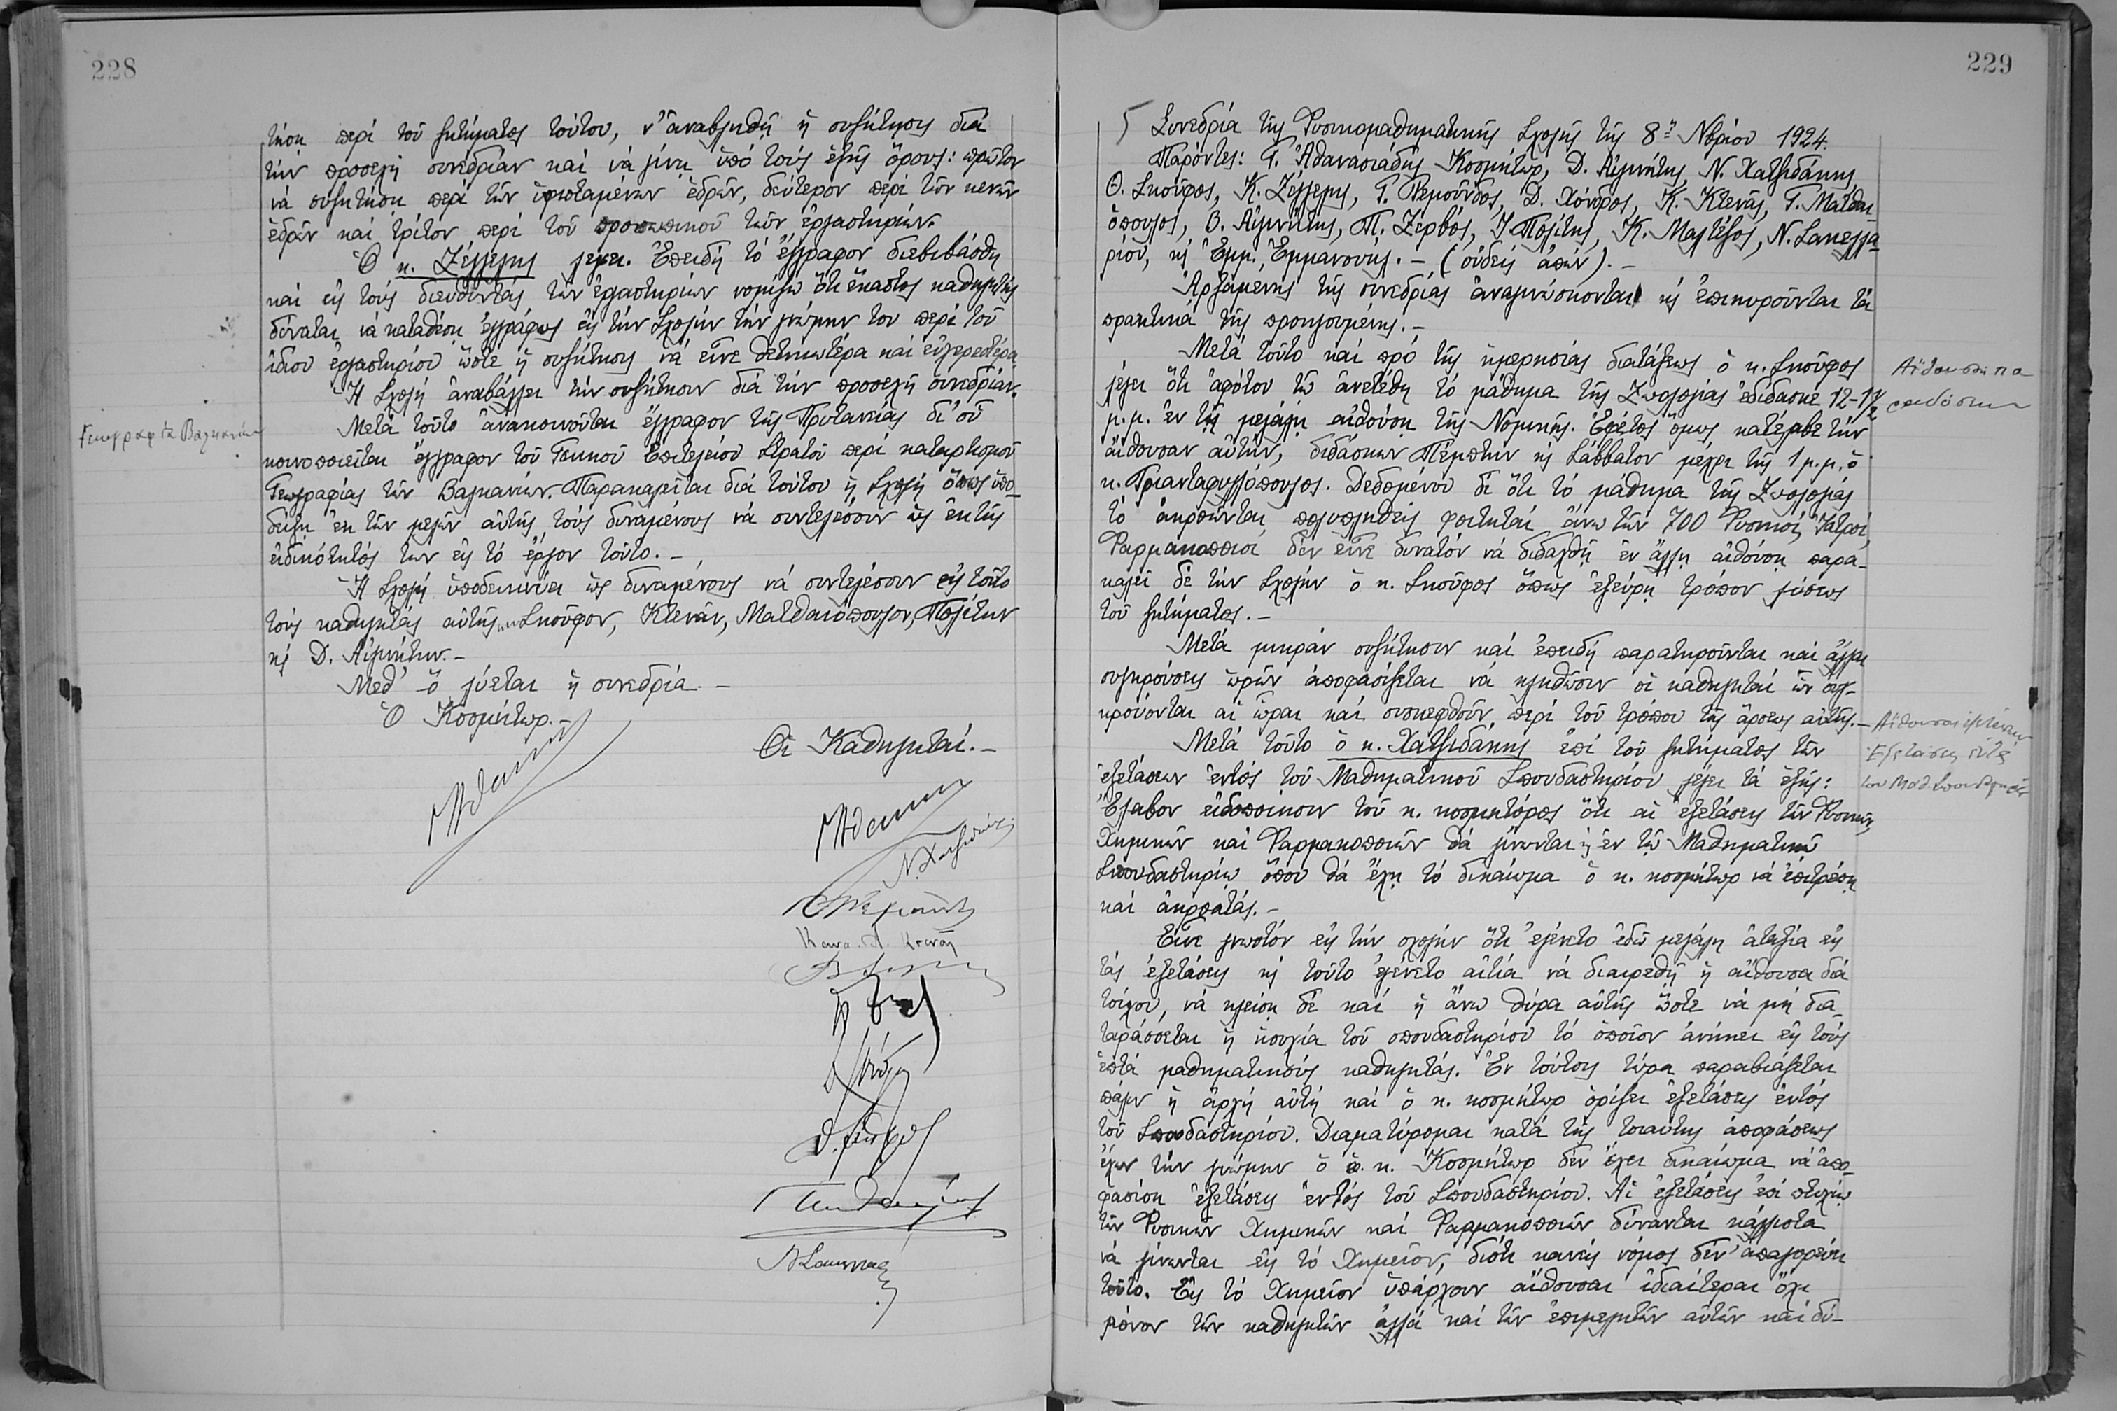 228
τήση περί τοῦ ζητήματος τούτου, ν' ἀναβληθῇ ἡ συζήτησις διά
τήν προσεχῆ συνεδρίαν καί νά γίνῃ ὑπό τούς ἑξῆς ὅρους: πρῶτον
νά συζητήσῃ περί τῶν ὑφισταμένων ἑδρῶν, δεύτερον περί τῶν κενῶν
ἑδρῶν καί τρίτον περί τοῦ προσωπικοῦ τῶν ἐργαστηρίων.
Ὁ κ. Ζέγγελης λέγει. Ἐπειδή τό ἔγγραφον διεβιβάσθη
καί εἰς τούς διευθυντάς τῶν ἐργαστηρίων νομίζω ὅτι ἕκαστος καθηγητής
δύναται νά καταθέσῃ ἐγγράφως εἰς τήν Σχολήν τήν γνώμην του περί τοῦ
ἰδίου ἐργαστηρίου ὥστε ἡ συζήτησις νά εἶνε θετικωτέρα καί εὐχερεστέρα.
Ἡ Σχολή ἀναβάλλει τήν συζήτησιν διά τήν προσεχῆ συνεδρίαν.
Μετά τοῦτο ἀνακοινοῦται ἔγγραφον τῆς Πρυτανείας δι' οὗ
Γεωγραφία Βαλκανίων
κοινοποιεῖται ἔγγραφον τοῦ Γενικοῦ Ἐπιτελείου Στρατοῦ περί καταρτισμοῦ
Γεωγραφίας τῶν Βαλκανίων. Παρακαλεῖται διά τούτου ἡ Σχολή ὅπως ὑπο-
δείξῃ ἐκ τῶν μελῶν αὐτῆς τούς δυναμένους νά συντελέσουν ὡς ἐκ τῆς
εἰδικότητός των εἰς τό ἔργον τοῦτο.-
Ἡ Σχολή ὑποδεικνύει ὡς δυναμένους νά συντελέσουν εἰς τοῦτο
τούς καθηγητάς αὐτῆς κκ Σκοῦφον, Κτενᾶν, Ματθαιόπουλον, Πολίτην
κ Δ. Αἰγινήτην.-
Μεθ' ὅ λύεται ἡ συνεδρία.-
Ὁ Κοσμήτωρ.-
Οἱ Καθηγηταί.-
Ν. Χατζιδάκις
229
Συνεδρία τῆς Φυσικομαθηματικῆς Σχολῆς τῆς 8ης Νβρίου 1924.
Παρόντες: Γ. Ἀθανασιάδης Κοσμήτωρ, Δ. Αἰγινήτης, Ν. Χατζιδάκης
Θ. Σκοῦφος, Κ. Ζέγγελης, Γ. Ρεμοῦνδος, Δ. Χόνδρος, Κ. Κτενᾶς, Γ. Ματθαι-
όπουλος, Β. Αἰγινήτης, Π. Ζερβός, Ι Πολίτης, Κ. Μαλτέζος, Ν. Σακελλα-
ρίου, κ Ἐμμ. Ἐμμανουήλ.- (οὐδείς ἀπών).-
Ἀρξαμένης τῆς συνεδρίας ἀναγινώσκονται κ ἐπικυροῦνται τά
πρακτικά τῆς προηγουμένης.-
Μετά τοῦτο καί πρό τῆς ἡμερησίας διατάξεως ὁ κ. Σκοῦφος
λέγει ὅτι ἀφότου τῷ ἀνετέθη τό μάθημα τῆς Ζωολογίας ἐδίδασκε 12-1½
Αἴθουσαι πα
ραδόσεων
μ.μ. ἐν τῇ μεγάλῃ αἰθούσῃ τῆς Νομικῆς. Ἐφέτος ὅμως κατέλαβε τήν
αἴθουσαν αὐτήν, διδάσκων Πέμπτην κ Σάββατον μέχρι τῆς 1 μ.μ. ὁ
κ. Τριανταφυλλόπουλος. Δεδομένου δέ ὅτι τό μάθημα τῆς Ζωολογίας
τό ἀκροῶνται πολυπληθεῖς φοιτηταί ἄνω τῶν 700 Φυσικοί, Ἰατροί,
Φαρμακοποιοί δέν εἶνε δυνατόν νά διδαχθῇ ἐν ἄλλῃ αἰθούσῃ παρα-
καλεῖ δέ τήν Σχολήν ὁ κ. Σκοῦφος ὅπως ἐξεύρῃ τρόπον λύσεως
τοῦ ζητήματος.-
Μετά μικράν συζήτησιν καί ἐπειδή παρατηροῦνται καί ἄλλαι
συγκρούσεις ὡρῶν ἀποφασίζεται νά κληθῶσιν οἱ καθηγηταί ὧν συγ-
κρούονται αἱ ὧραι καί συσκεφθοῦν περί τοῦ τρόπου τῆς ἄρσεως αὐτῆς.-
Μετά τοῦτο ὁ κ. Χατζιδάκης ἐπί τοῦ ζητήματος τῶν
Ἐξετάσεις ἐντός
ἐξετάσεων ἐντός τοῦ Μαθηματικοῦ Σπουδαστηρίου λέγει τά ἑξῆς:
του Μαθ. Σπουδαστηρίου
Ἔλαβον εἰδοποίησιν τοῦ κ. κοσμήτορος ὅτι αἱ ἐξετάσεις τῶν Φυσικῶν,
Χημικῶν καί Φαρμακοποιῶν θά γίνωνται ἐν τῷ Μαθηματικῷ
Σπουδαστηρίῳ ὅπου θά ἔχῃ τό δικαίωμα ὁ κ. κοσμήτωρ νά ἐπιτρέπῃ
καί ἀκροατάς.-
Εἶνε γνωστόν εἰς τήν σχολήν ὅτι ἐγένετο ἐδῶ μεγάλη ἀταξία εἰς
τάς ἐξετάσεις κ τοῦτο ἐγένετο αἰτία νά διαιρεθῇ ἡ αἴθουσα διά
τοίχου, νά κλείσῃ δέ καί ἡ ἄνω θύρα αὐτῆς ὥστε νά μή δια-
ταράσσεται ἡ ἡσυχία τοῦ σπουδαστηρίου τό ὁποῖον ἀνήκει εἰς τούς
ἑπτά μαθηματικούς καθηγητάς. Ἐν τούτοις τώρα παραβιάζεται
πάλιν ἡ ἀρχή αὐτή καί ὁ κ. κοσμήτωρ ὁρίζει ἐξετάσεις ἐντός
τοῦ Σπουδαστηρίου. Διαμαρτύρομαι κατά τῆς τοιαύτης ἀποφάσεως
ἔχων τήν γνώμην ὅ κ. Κοσμήτωρ δέν ἔχει δικαίωμα νά ἀπο-
φασίσῃ ἐξετάσεις ἐντός τοῦ Σπουδαστηρίου. Αἱ ἐξετάσεις ἐπί πτυχίῳ
τῶν Φυσικῶν Χημικῶν καί Φαρμακοποιῶν δύνανται κάλλιστα
νά γίνωνται εἰς τό Χημεῖον, διότι κανείς νόμος δέν ἀπαγορεύει
τοῦτο. Εἰς τό Χημεῖον ὑπάρχουν αἴθουσαι ἰδιαίτεραι ὄχι
μόνον τῶν καθηγητῶν ἀλλά καί τῶν ἐπιμελητῶν αὐτῶν καί δύ-